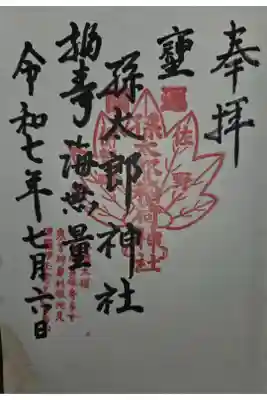 奉拝
孫太郎神社
福寿海無量
令和七年七月六日
開運
佐野
孫太郎稲荷神社